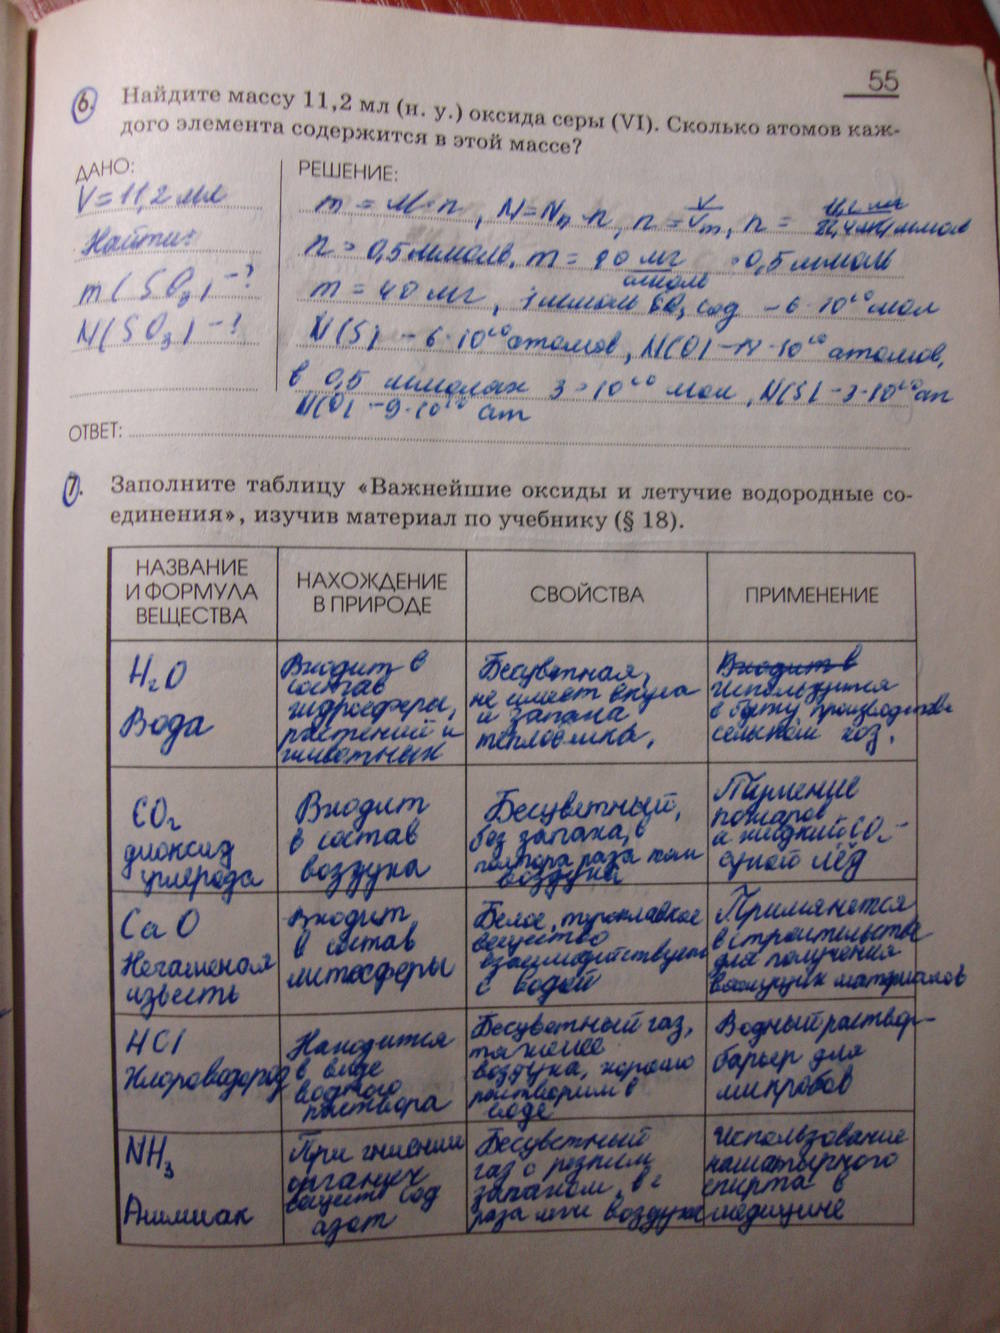 55
6. Найдите массу 11,2 мл (н. у.) оксида серы (VI). Сколько атомов каж-
дого элемента содержится в этой массе?
ДАНО:
V = 11,2 мл
Найти:
m(SO3) - ?
N(SO3) - ?
РЕШЕНИЕ:
m = M·n, N = Nп·n, n = V/Vm, n = 11,2 мл / 22,4 мл/ммоль
n = 0,5 ммоль, m = 80 мг/ммоль · 0,5 ммоль
m = 40 мг, 1 ммоль SO3 сод – 6·10²⁰ мол
N(S) – 6·10²⁰ атомов, N(O) – 18·10²⁰ атомов,
в 0,5 ммолях 3·10²⁰ мол, N(S) – 3·10²⁰ ат
N(O) – 9·10²⁰ ат
ОТВЕТ:
7. Заполните таблицу «Важнейшие оксиды и летучие водородные со-
единения», изучив материал по учебнику (§ 18).
НАЗВАНИЕ
И ФОРМУЛА
ВЕЩЕСТВА
НАХОЖДЕНИЕ
В ПРИРОДЕ
СВОЙСТВА
ПРИМЕНЕНИЕ
H2O
Вода
Входит в
состав
гидросферы,
растений и
животных
Бесцветная,
не имеет вкуса
и запаха
теплоёмка.
Входит в
используется
в быту, производстве
сельском хоз.
CO2
диоксид
углерода
Входит
в состав
воздуха
Бесцветный,
без запаха, в
полтора раза
воздуха
Тушение
пожаров
а жидкий CO2 –
сухой лёд
CaO
Негашеная
известь
Входит
в состав
литосферы
Белое, тугоплавкое
вещество
взаимодействует
с водой
Применяется
в строительстве
для получения
вяжущих материалов
HCl
Хлороводород
Находится
в виде
водного
раствора
Бесцветный газ,
тяжелее
воздуха, хорошо
растворим в
воде
Водный раствор –
барьер для
микробов
NH3
Аммиак
При гниении
органич
веществ сод
азот
Бесцветный
газ с резким
запахом, в 2
раза легче воздуха
Использование
нашатырного
спирта в
медицине